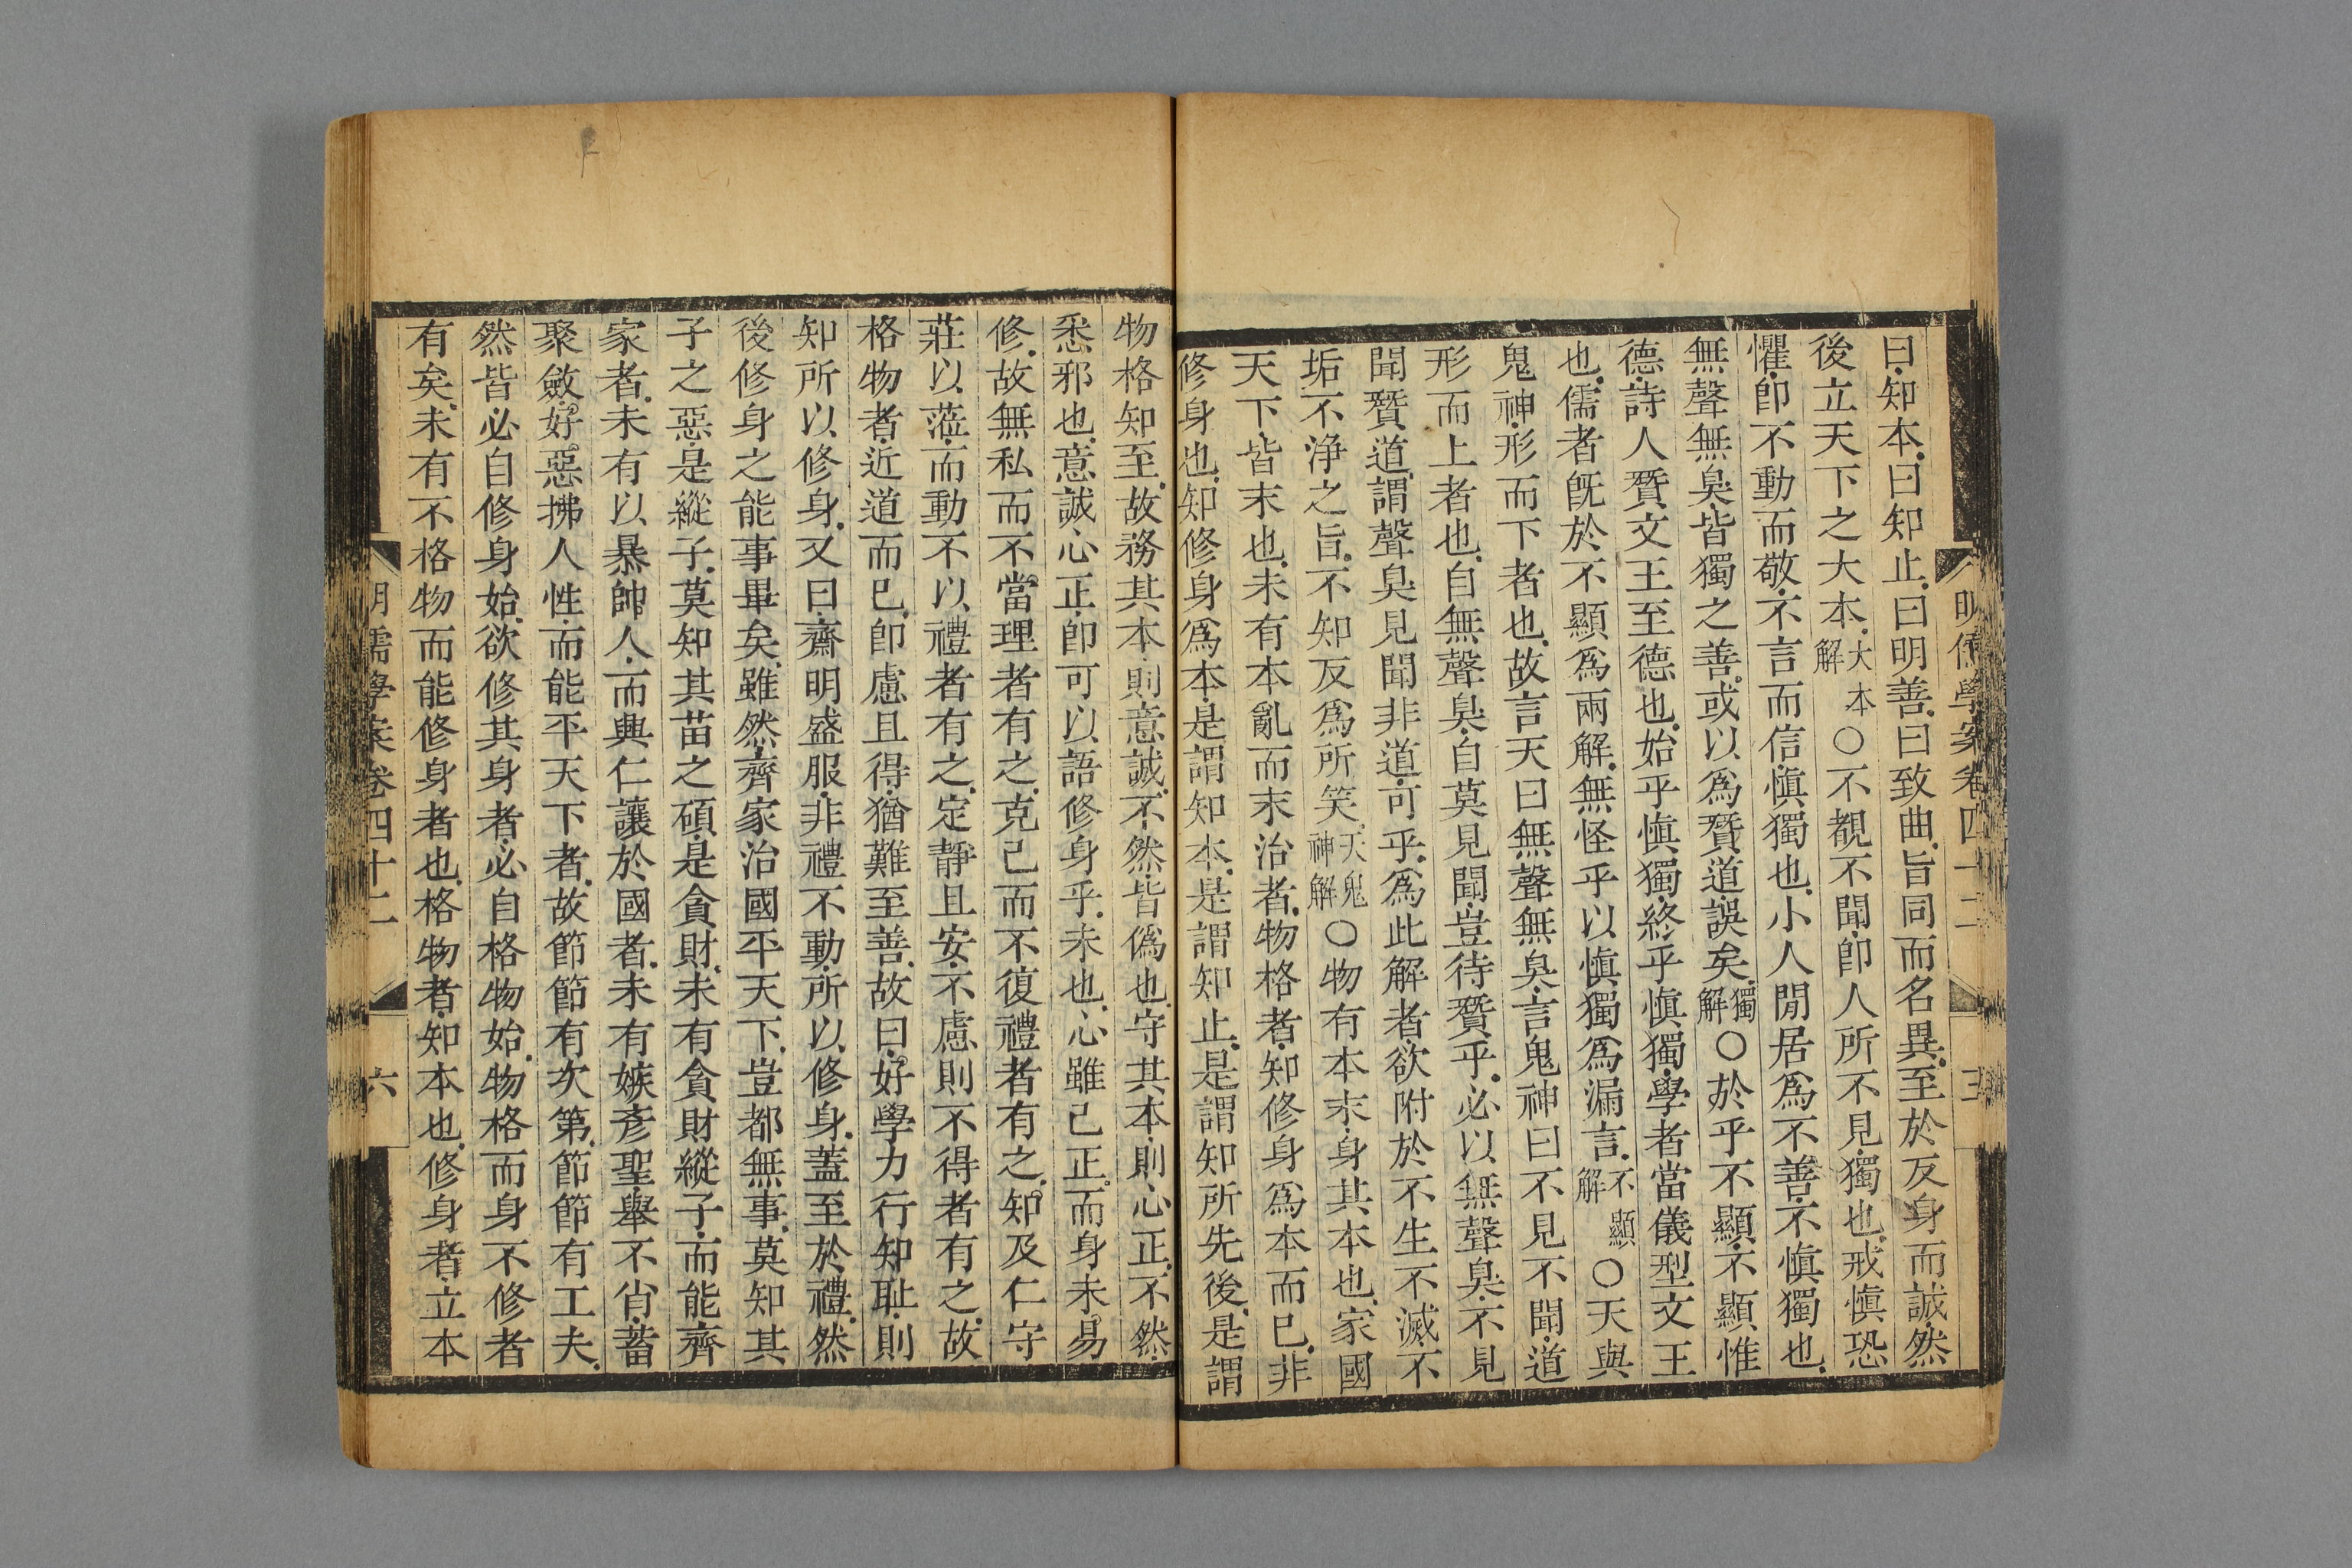 曰知本曰知止曰明善曰致曲旨同而名異至於反身而誠然
後立天下之大本大本解〇不覩不聞卽人所不見獨也戒慎恐
懼卽不動而敬不言而信慎獨也小人閒居爲不善不慎獨也
無聲無臭皆獨之善或以爲贊道誤矣獨解〇於乎不顯不顯惟
德詩人贊文王至德也始乎慎獨終乎慎獨學者當儀型文王
也儒者旣於不顯爲兩解無怪乎以慎獨爲漏言不顯解〇天與
鬼神形而下者也故言天曰無聲無臭言鬼神曰不見不聞道
形而上者也自無聲臭自莫見聞豈待贊乎必以無聲臭不見
聞贊道謂聲臭見聞非道可乎爲此解者欲附於不生不滅不
垢不淨之旨不知反爲所笑天鬼神解〇物有本末身其本也家國
天下皆末也未有本亂而末治者物格者知修身爲本而已非
修身也知修身爲本是謂知本是謂知止是謂知所先後是謂
物格知至故務其本則意誠不然皆僞也守其本則心正不然
悉邪也意誠心正卽可以語修身乎未也心雖已正而身未易
修故無私而不當理者有之克己而不復禮者有之知及仁守
莊以蒞而動不以禮者有之定靜且安不慮則不得者有之故
格物者近道而已卽慮且得猶難至善故曰好學力行知恥則
知所以修身又曰齋明盛服非禮不動所以修身蓋至於禮然
後修身之能事畢矣雖然齊家治國平天下豈都無事莫知其
子之惡是縱子莫知其苗之碩是貪財未有貪財縱子而能齊
家者未有以暴帥人而興仁讓於國者未有嫉彥聖舉不肖蓄
聚斂好惡拂人性而能平天下者故節節有次第節節有工夫
然皆必自修身始欲修其身者必自格物始物格而身不修者
有矣未有不格物而能修身者也格物者知本也修身者立本
明儒學案卷四十二
六